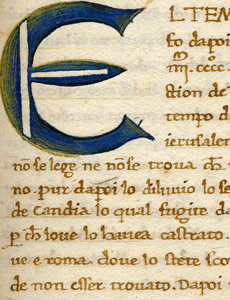 E
L TEM
fo dapoi
iiij. cccc
stion de
tempo d
ierusalem
no se lege ne nõ se troua ch̃
no. pur dapoi lo diluuio lo se
de Candia lo qual fugite da
p ch̃ ioue lo hauea castrato.
ue e roma. doue lo stete sco
de non esser trouato. Dapoi